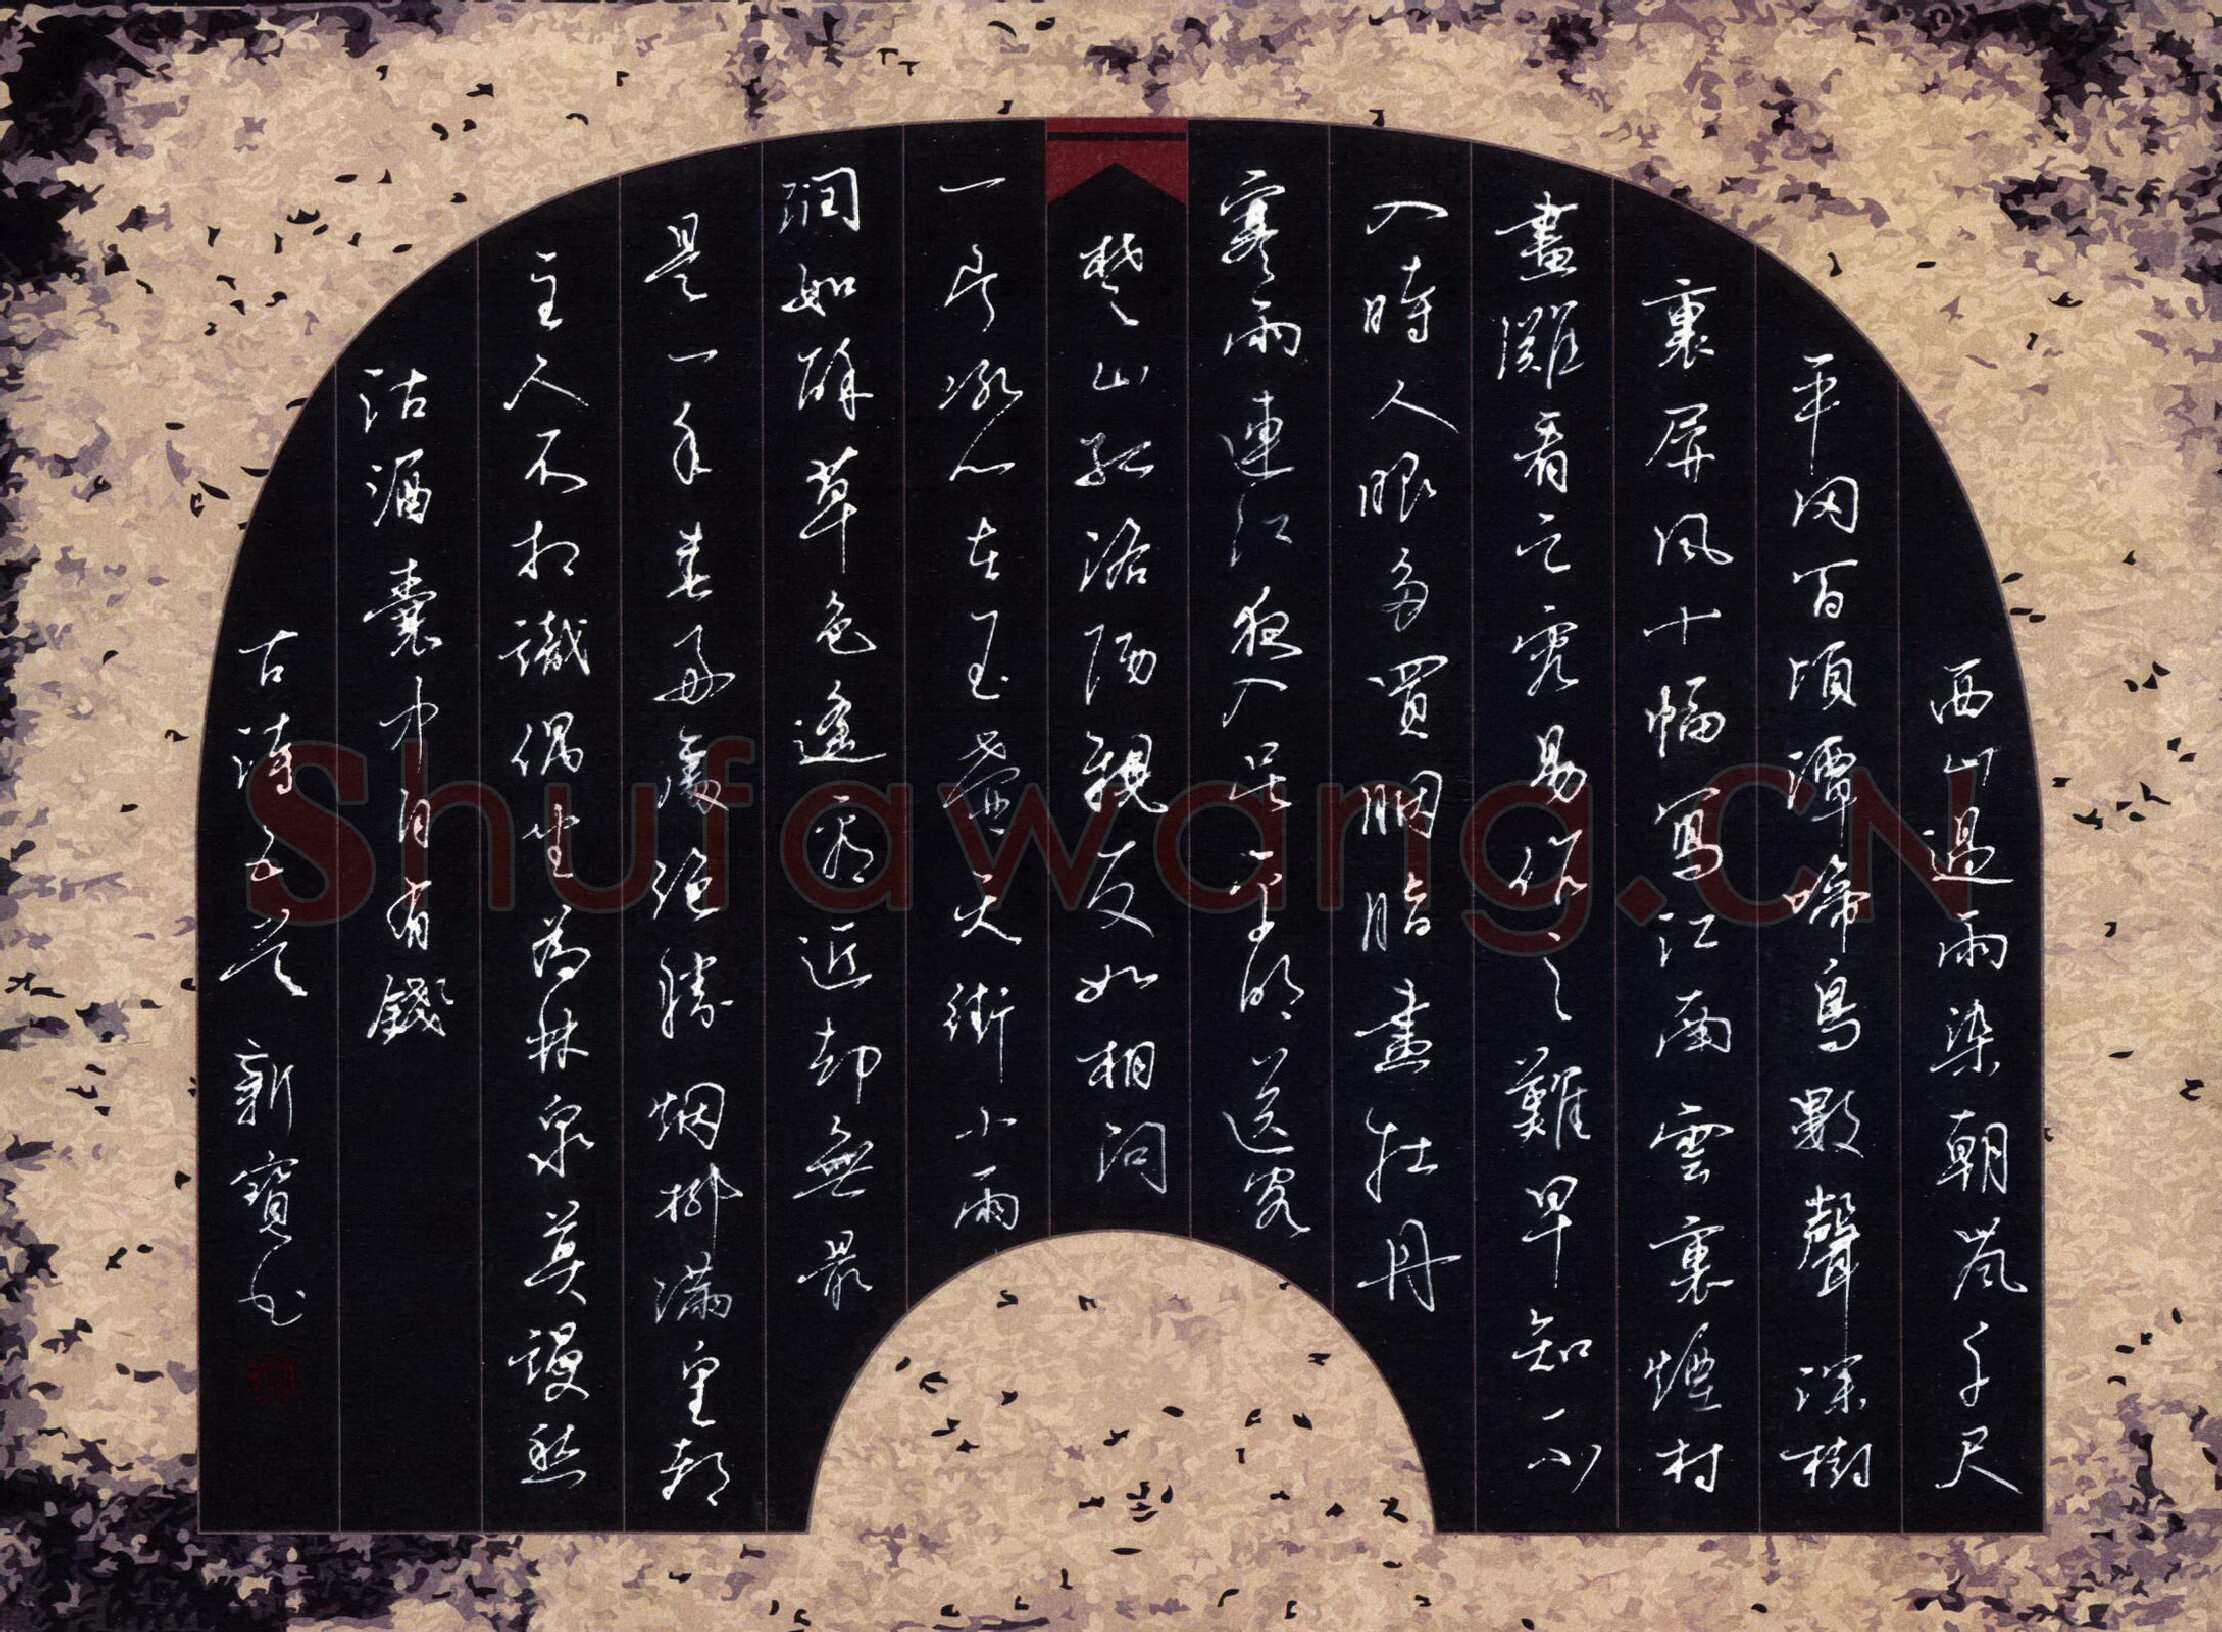 西山過雨染朝嵐千尺
平岡百頃潭啼鳥數聲深樹
裏屏風十幅寫江南雲裏煙村
畫灘看之容易作之難早知不
入時人眼多買胭脂畫牡丹
寒雨連江夜入吳平明送客
楚山孤洛陽親友如相問
一片冰心在玉壺天街小雨
潤如酥草色遙看近却無最
是一年春好處絕勝烟柳滿皇都
主人不相識偶坐為林泉莫謾愁
沽酒囊中自有錢
古詩五首 新寶書
Shufawang.CN